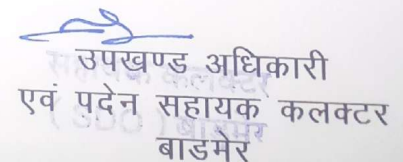 उपखण्ड अधिकारी
एवं पदेन सहायक कलक्टर
बाडमेर